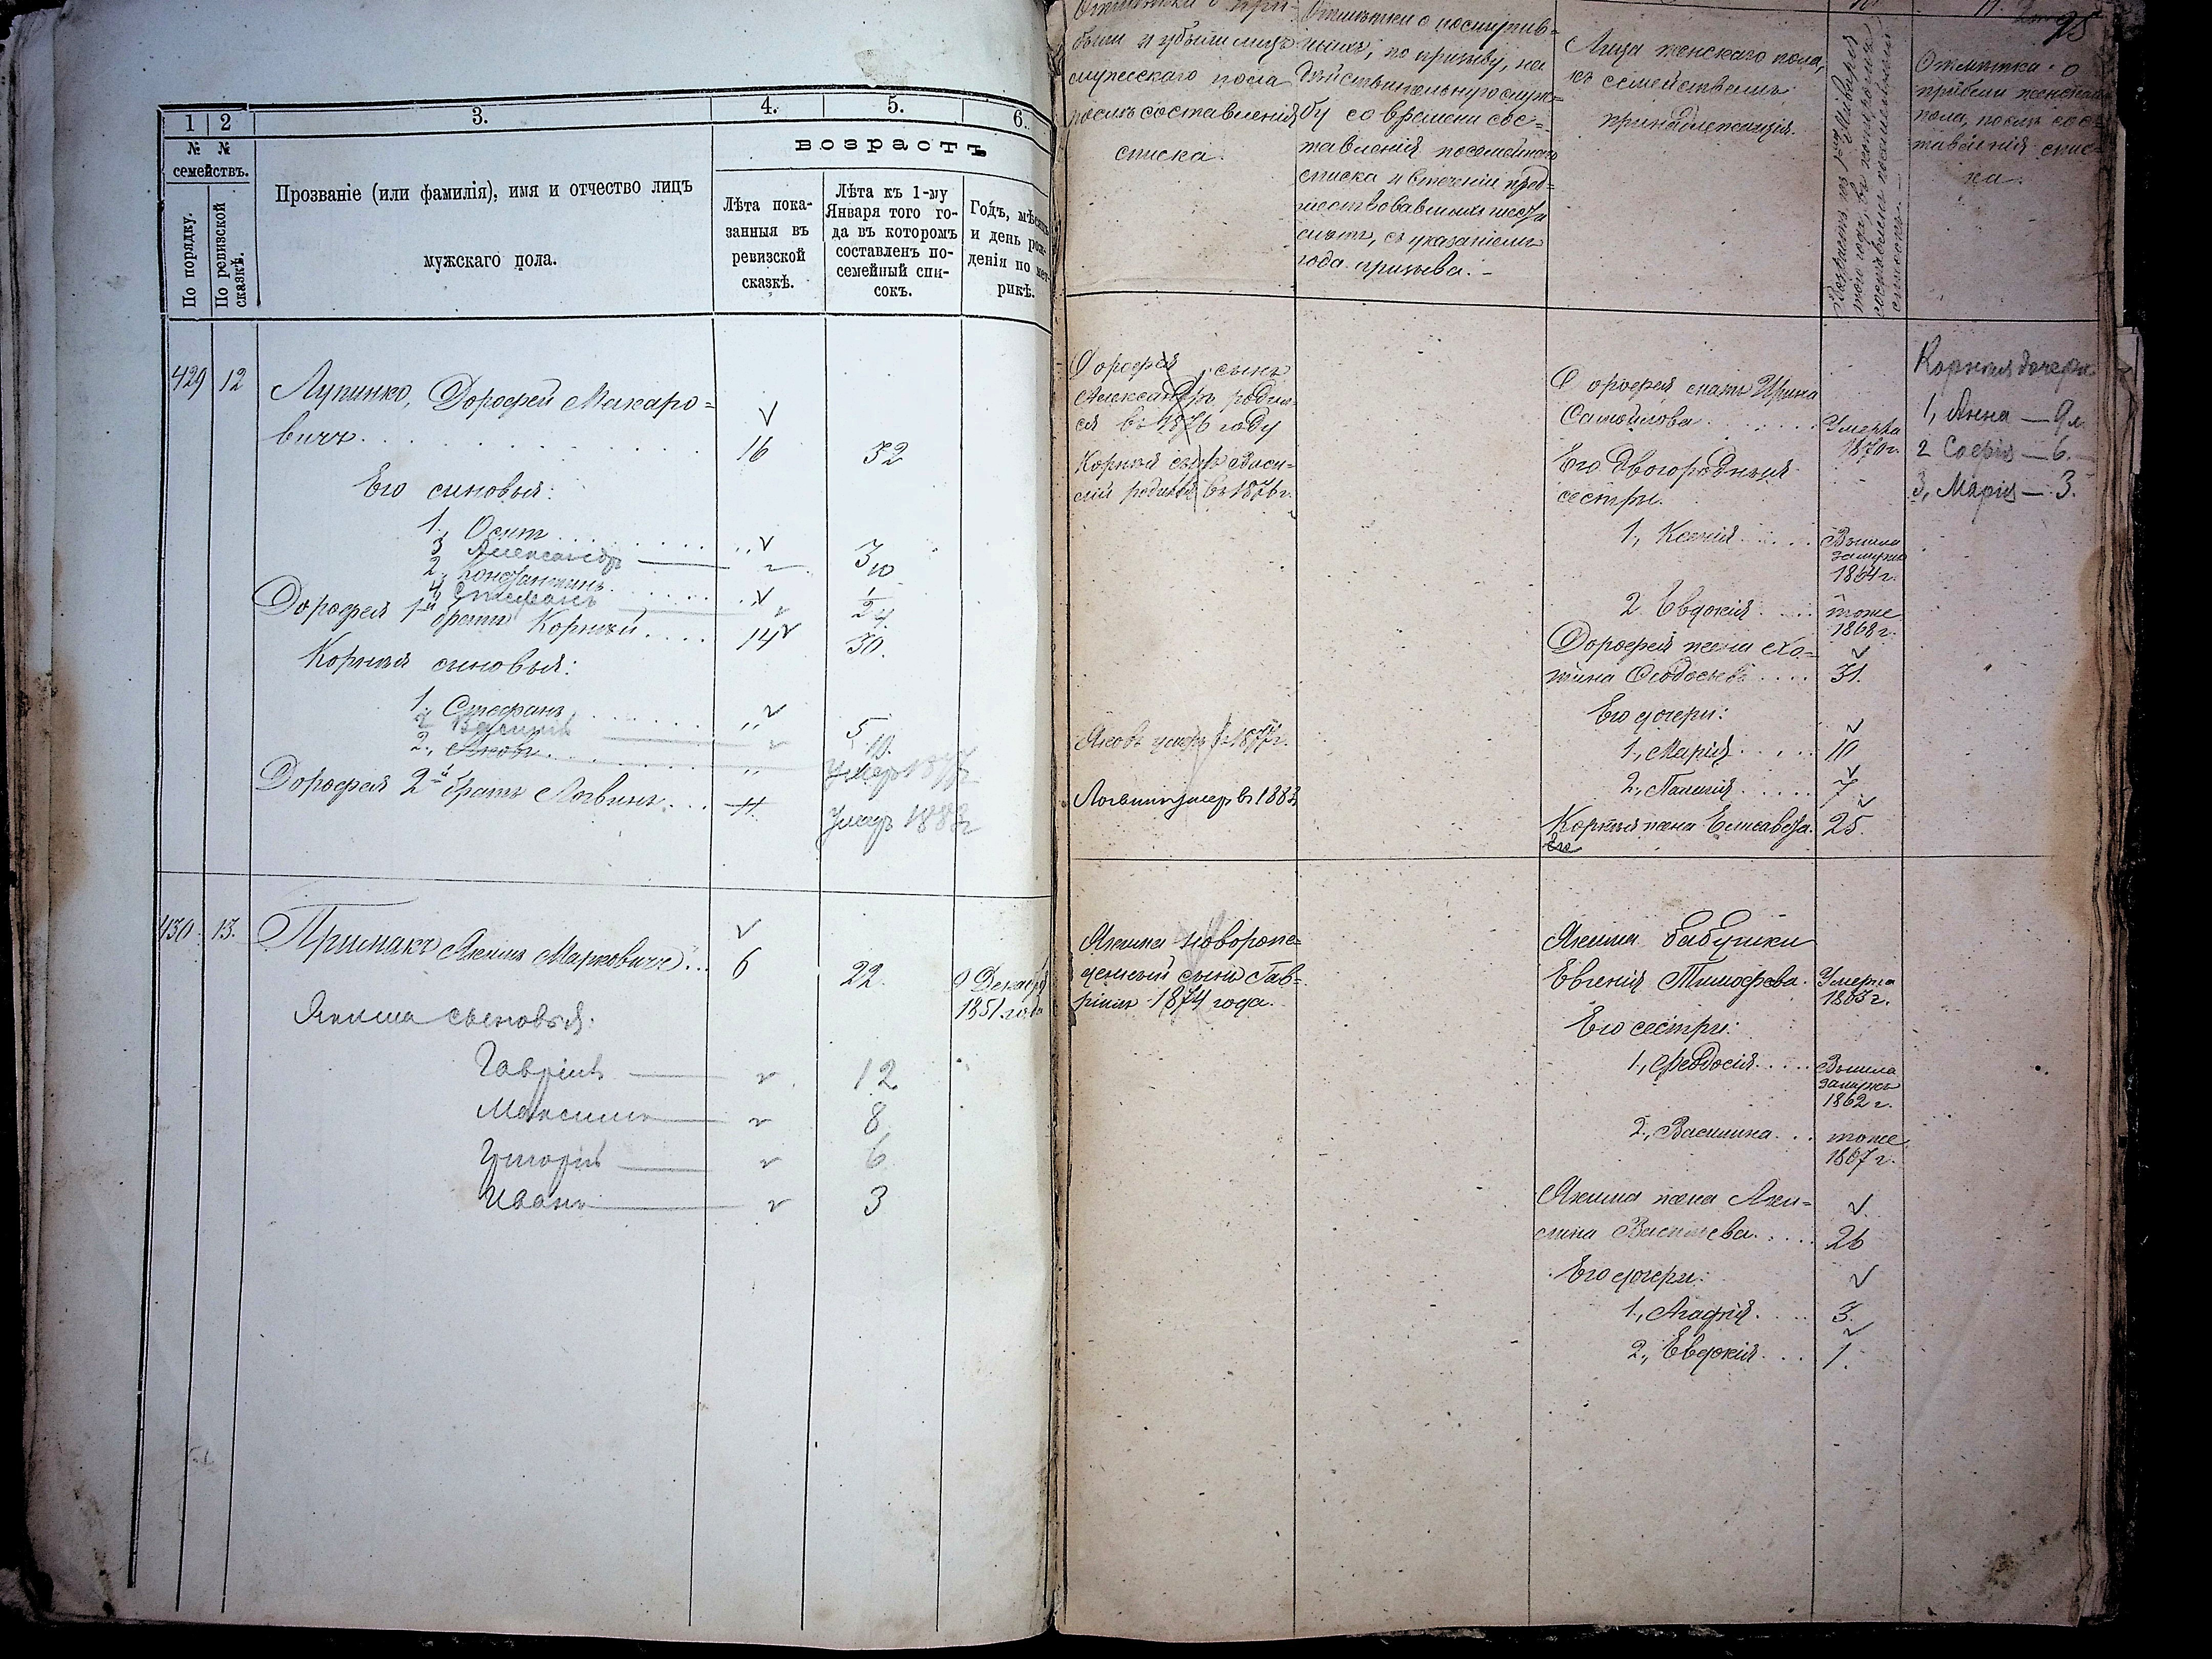 1 2 3. 4. 5. 6.
№ № семействъ.
По порядку.
По ревизской сказкѣ.
Прозваніе (или фамилія), имя и отчество лицъ
мужскаго пола.
возрастъ
Лѣта пока-
занныя въ
ревизской
сказкѣ.
Лѣта къ 1-му
Января того го-
да въ которомъ
составленъ по-
семейный спи-
сокъ.
Годъ, мѣсяцъ
и день рож-
денія по мет-
рикѣ.
429 12
Лупинко, Дорофей Макаро=
вичъ 16 32
Его сыновья:
1, Осипъ 3
3 Александръ 10
2, Константинъ 1/2
4 Стефанъ 4.
Дорофея 1й братъ Корній 14 30.
Корнія сыновья:
1. Стефанъ 5
2 Василій 10.
2., Яковъ Умеръ 1877г
Дорофея 2й братъ Логвинъ 11 Умеръ 1883г
430. 13.
Примакъ Якимъ Марковичъ 6 22. 9 Декабря
1851 года
Якима сыновья:
Гавріилъ 12
Максимъ 8
Григорій 6
Иванъ 3
95
были и убыли лицъ
мужескаго пола
послѣ составленія
списка.
Отмѣтки о поступив=
шихъ, по призыву, на
дѣйствительную служ=
бу со времени сос=
тавленія посемейнаго
списка и втеченіи пред=
шествовавшихъ шести
лѣтъ, съ указаніемъ
года призыва. –
Лица женскаго пола,
къ семействамъ
принадлежащія.
Возрастъ къ 1му Января
того года, въ которомъ
составленъ посемейный
списокъ.
Отмѣтка о
прибыли женскаго
пола, послѣ сос=
тавленія спис=
ка.
Дорофея, сынъ
Александръ родил=
ся въ 1876 году
Корнія сынъ Васи=
лій родился въ 1876 г.
Яковъ умеръ въ 1877г.
Логвинъ умеръ въ 1883
Дорофея мать Ирина
Самойлова Умерла
1870г.
Его двоюродныя
сестры.
1, Ксенія Вышла
замужъ
1864 г.
2 Евдокія тоже
1868 г.
Дорофея жена Хо=
тина Ѳеодосьева 31.
Его дочери:
1, Марія 10
2, Палагія 7.
Корнія жена Елисавета. 25.
Его
Корнія дочери
1, Анна — 9 л.
2 Софія — 6. —
3, Марія — 3.
Якима новорож=
денный сынъ Гав=
ріилъ 1874 года.
Якима бабушки
Евгенія Тимофѣева. Умерла
1863 г.
Его сестры:
1, Ѳеодосія Вышла
замужъ
1862 г.
2, Василина тоже
1867 г.
Якима жена Аки=
лина Васильева 26
Его дочери:
1, Агафія 3.
2, Евдокія 1.